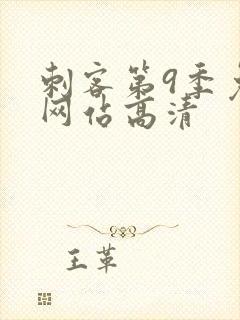 刺客第9季
网佔高清
王革